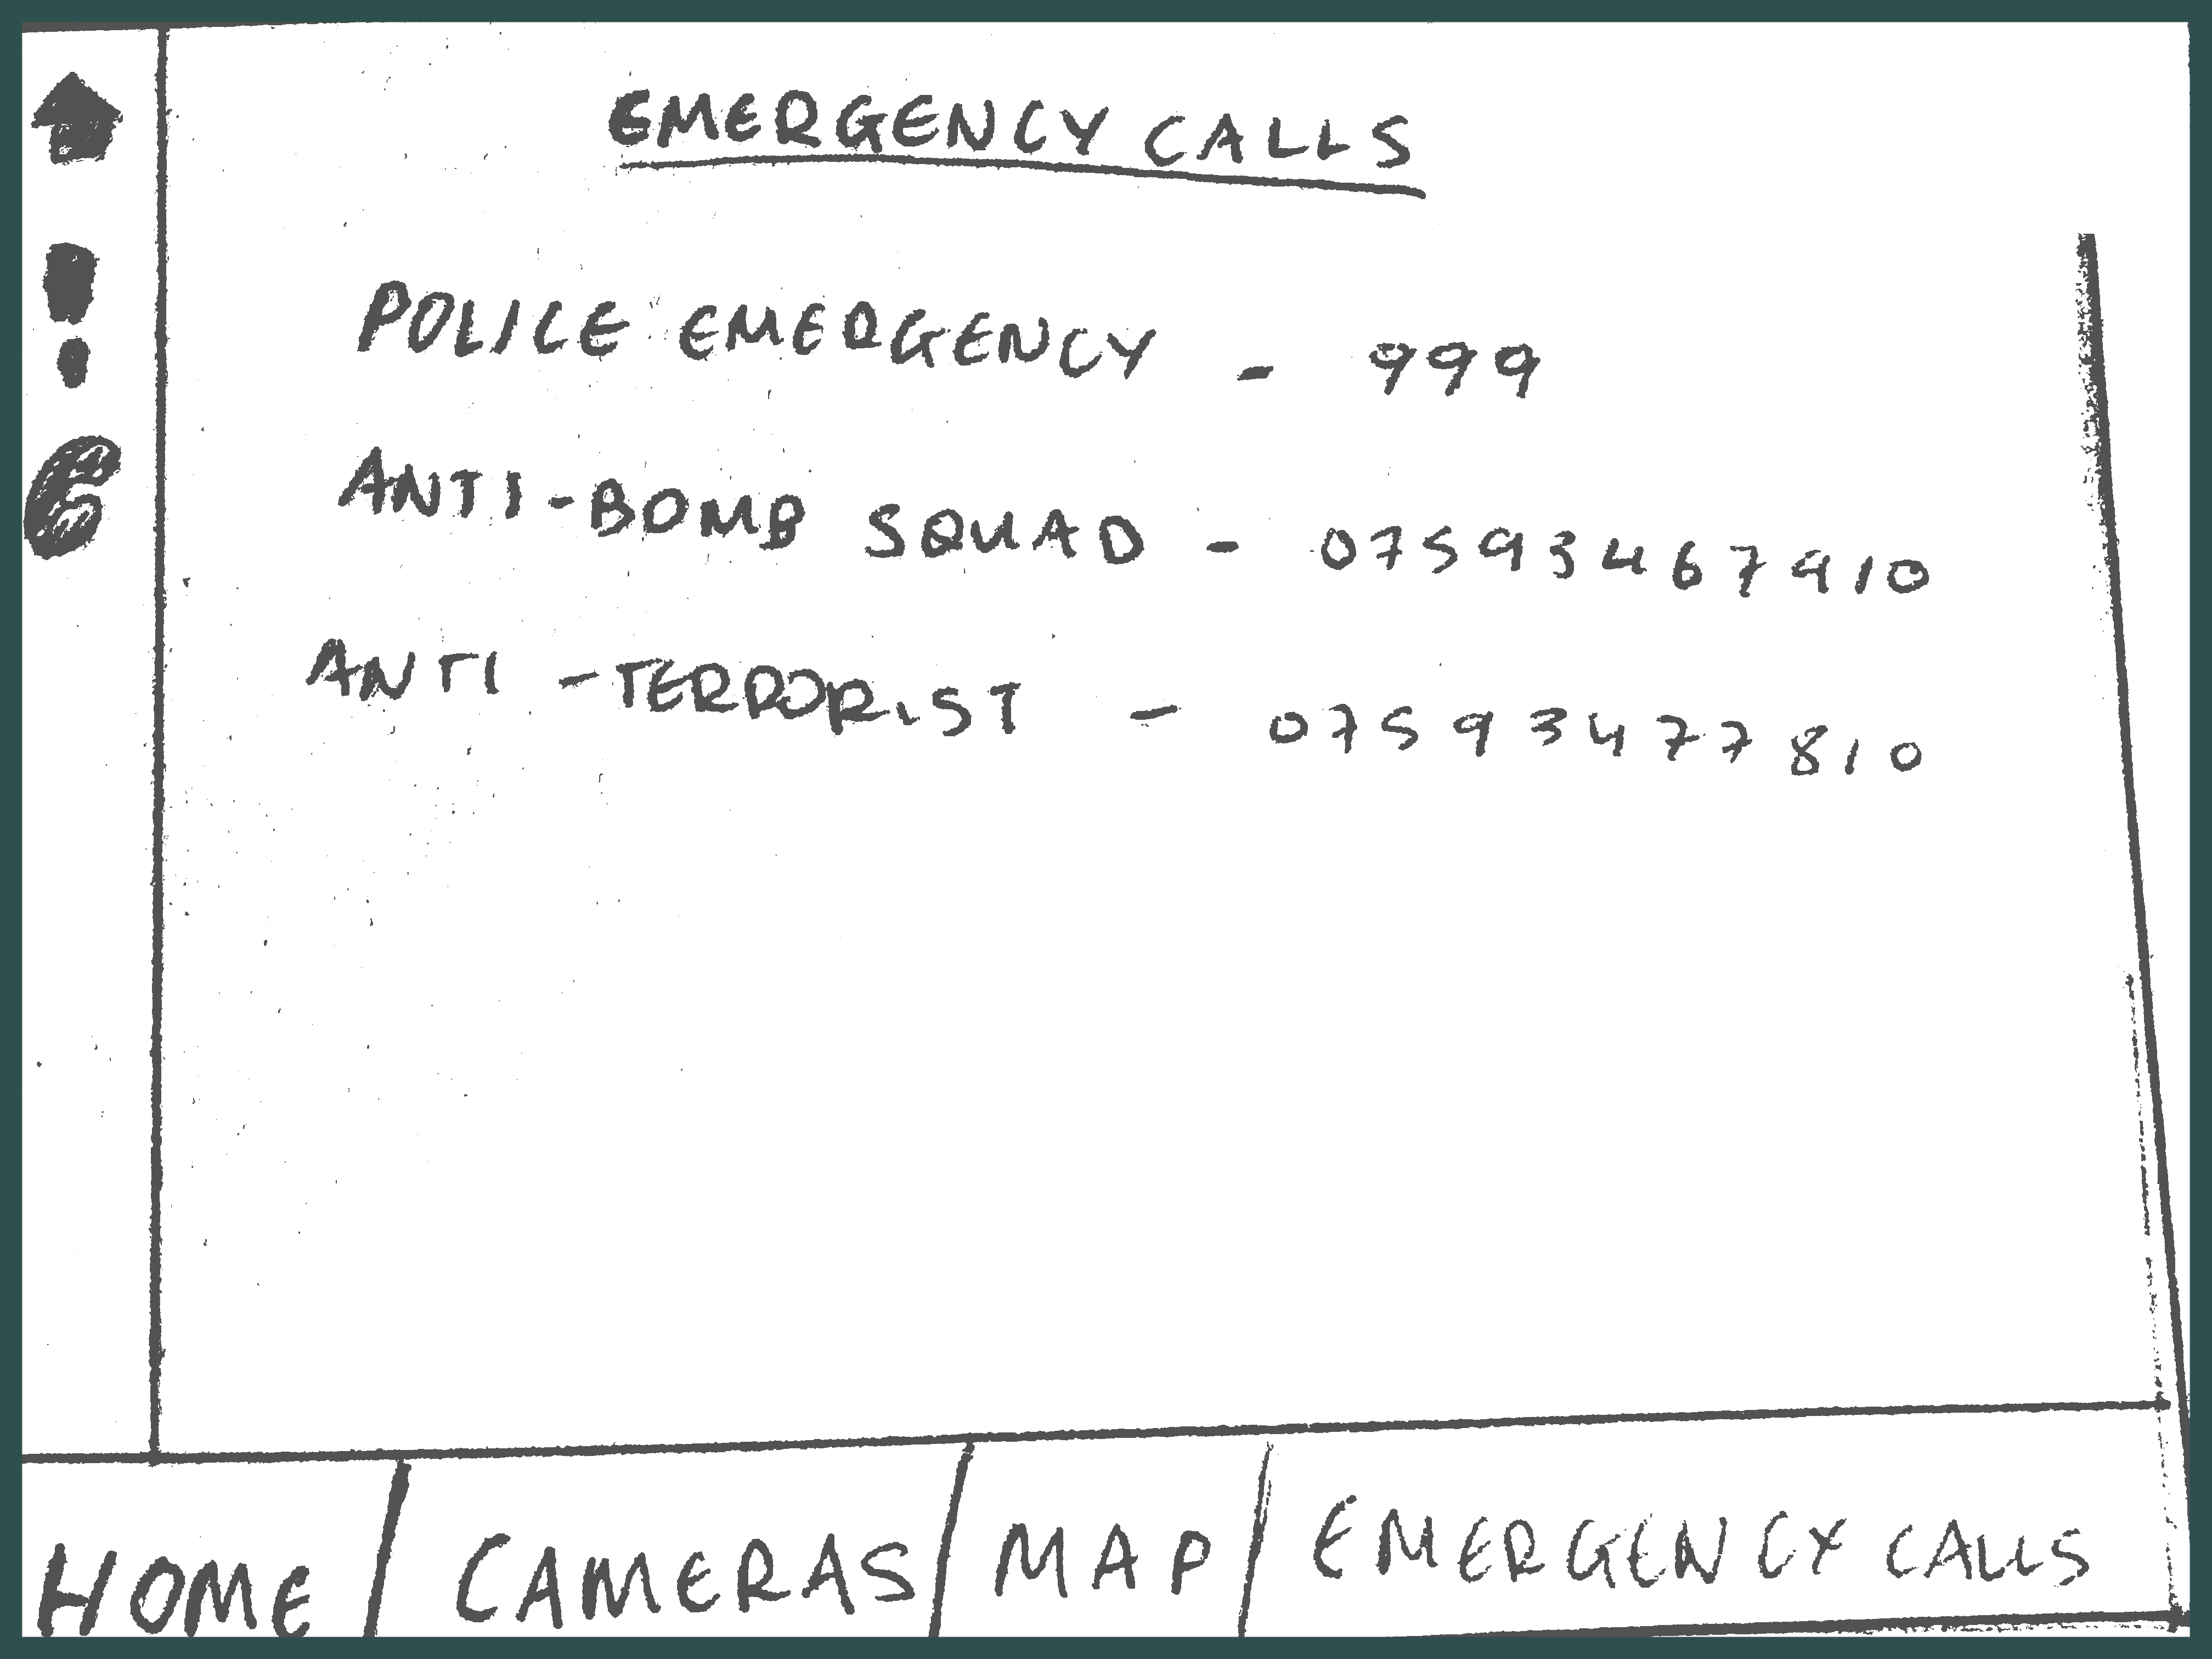 EMERGENCY CALLS
POLICE EMERGENCY - 999
ANTI-BOMB SQUAD - 07593467910
ANTI-TERRORIST - 07593477810
HOME
CAMERAS
MAP
EMERGENCY CALLS